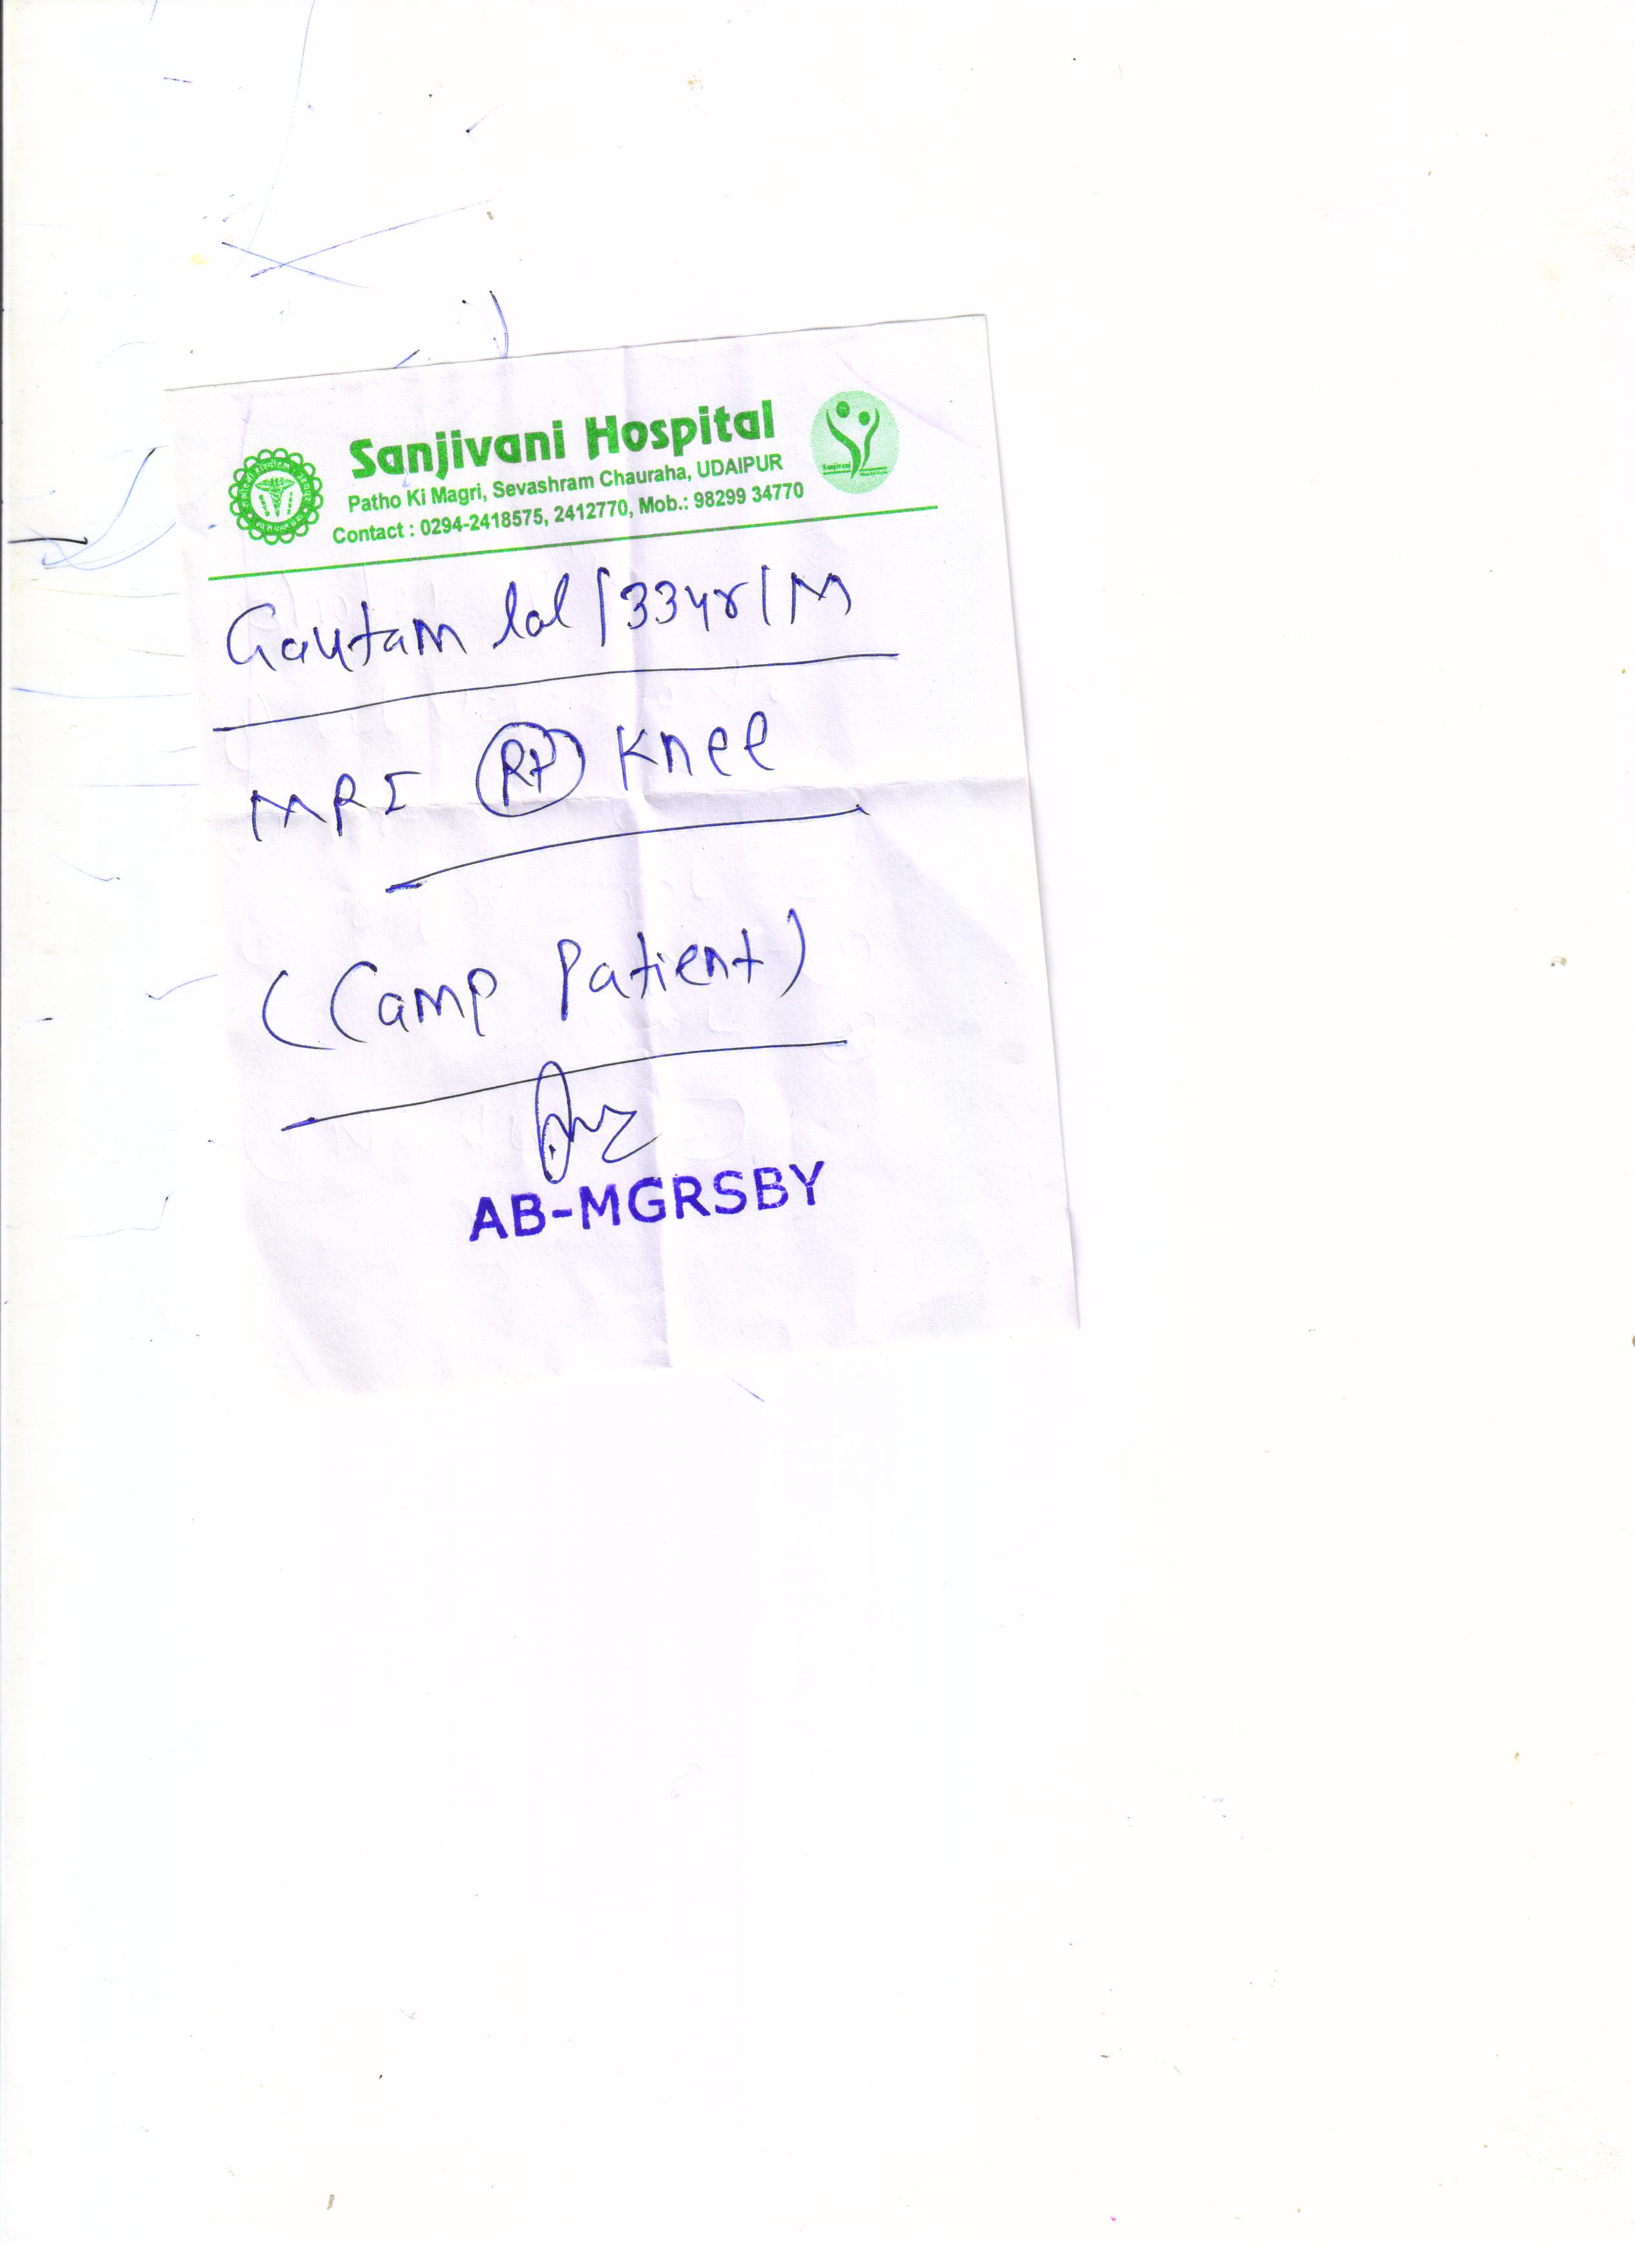 Sanjivani Hospital
Patho Ki Magri, Sevashram Chauraha, UDAIPUR
Contact : 0294-2418575, 2412770, Mob.: 98299 34770
Gautam lal / 33yr / M
MRI Rt Knee
(Camp Patient)
AB-MGRSBY